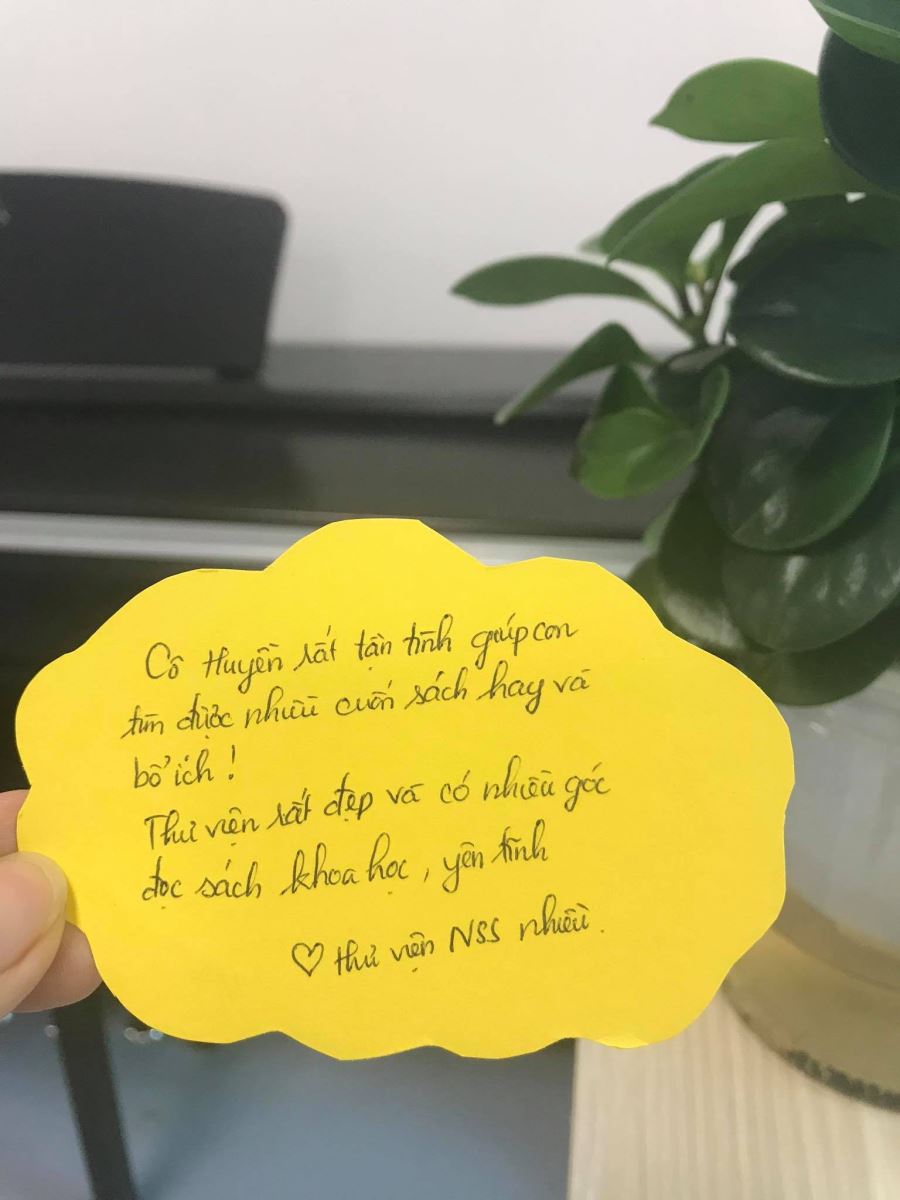 Cô Huyền rất tận tình giúp con
tìm được nhiều cuốn sách hay và
bổ ích !
Thư viện rất đẹp và có nhiều góc
đọc sách khoa học, yên tĩnh
♡ thư viện NSS nhiều.